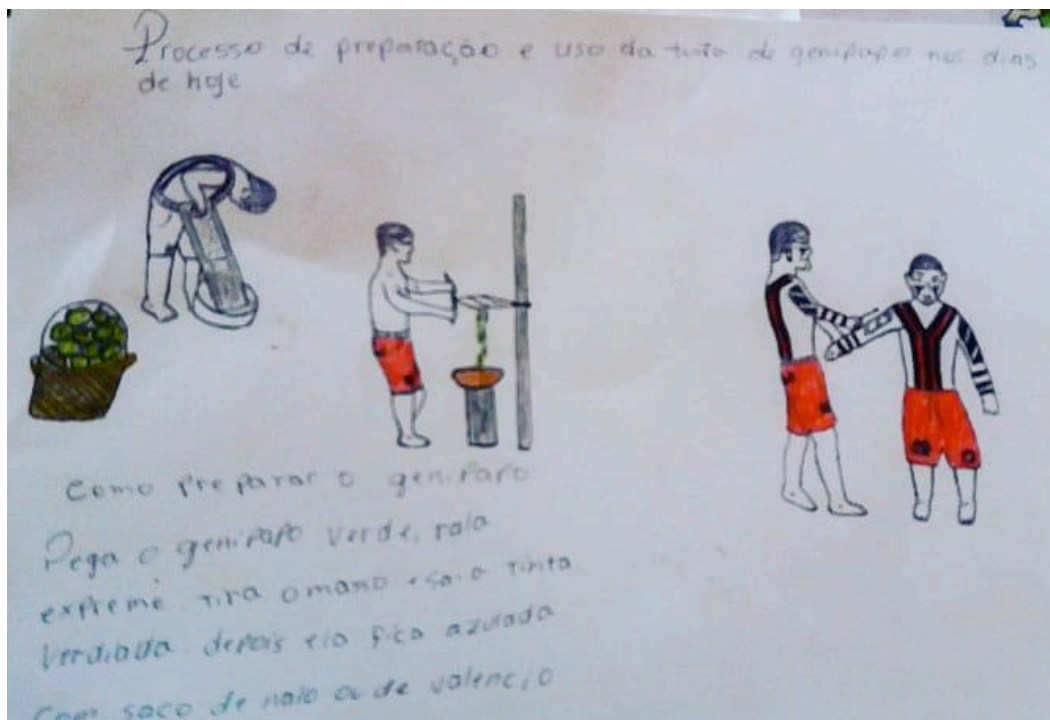 Processo de preparação e uso da tinta de genipapo nos dias
de hoje
Como preparar o genipapo
Pega o genipapo verde, rala
expreme tira o mano sai a tinta
Verdiada depois ela fica azulada
saco de ou de